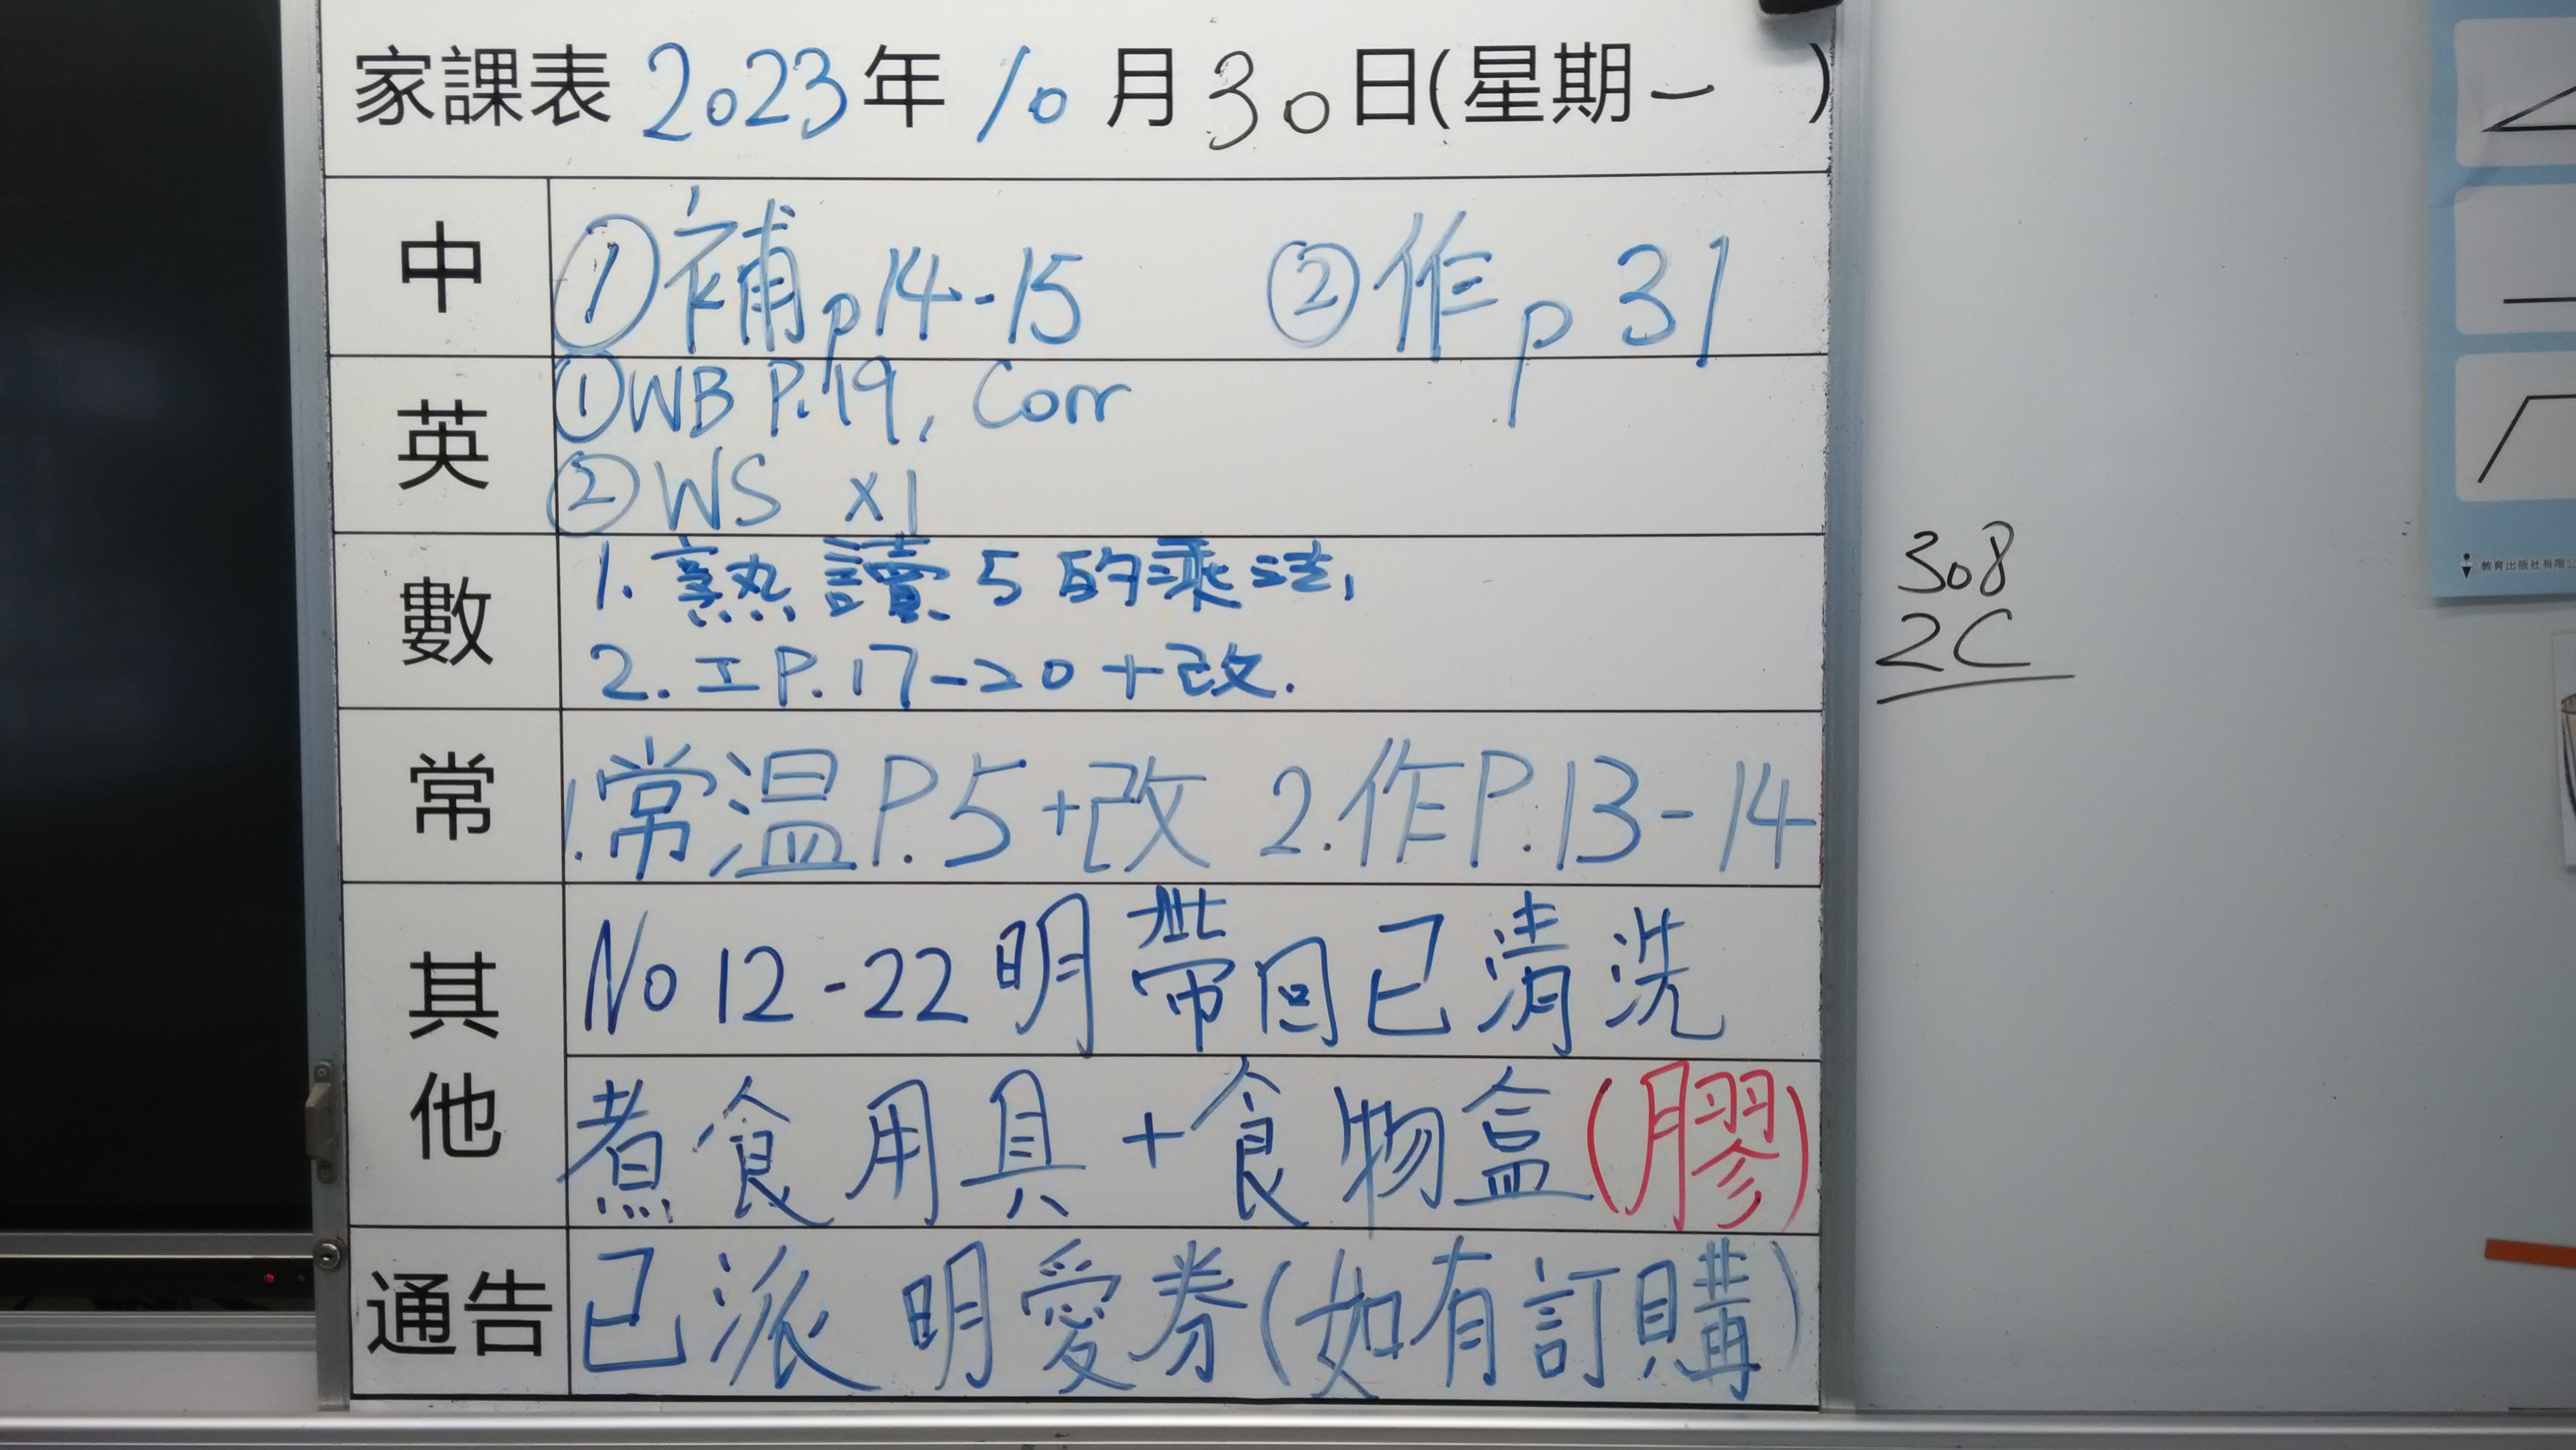 家課表 2023年 10 月 30 日(星期一 )
中 ①補p14-15 ②作p31
英 ①WB P.19, Corr
②WS x1
數 1. 熟讀5的乘法,
2. 工P.17-20+改.
常 1.常温P.5+改 2.作P.13-14
其他 No 12-22明帶回已清洗
煮食用具+食物盒(膠)
通告 已派 明愛券(如有訂購)
308
2C
教育出版社有限公